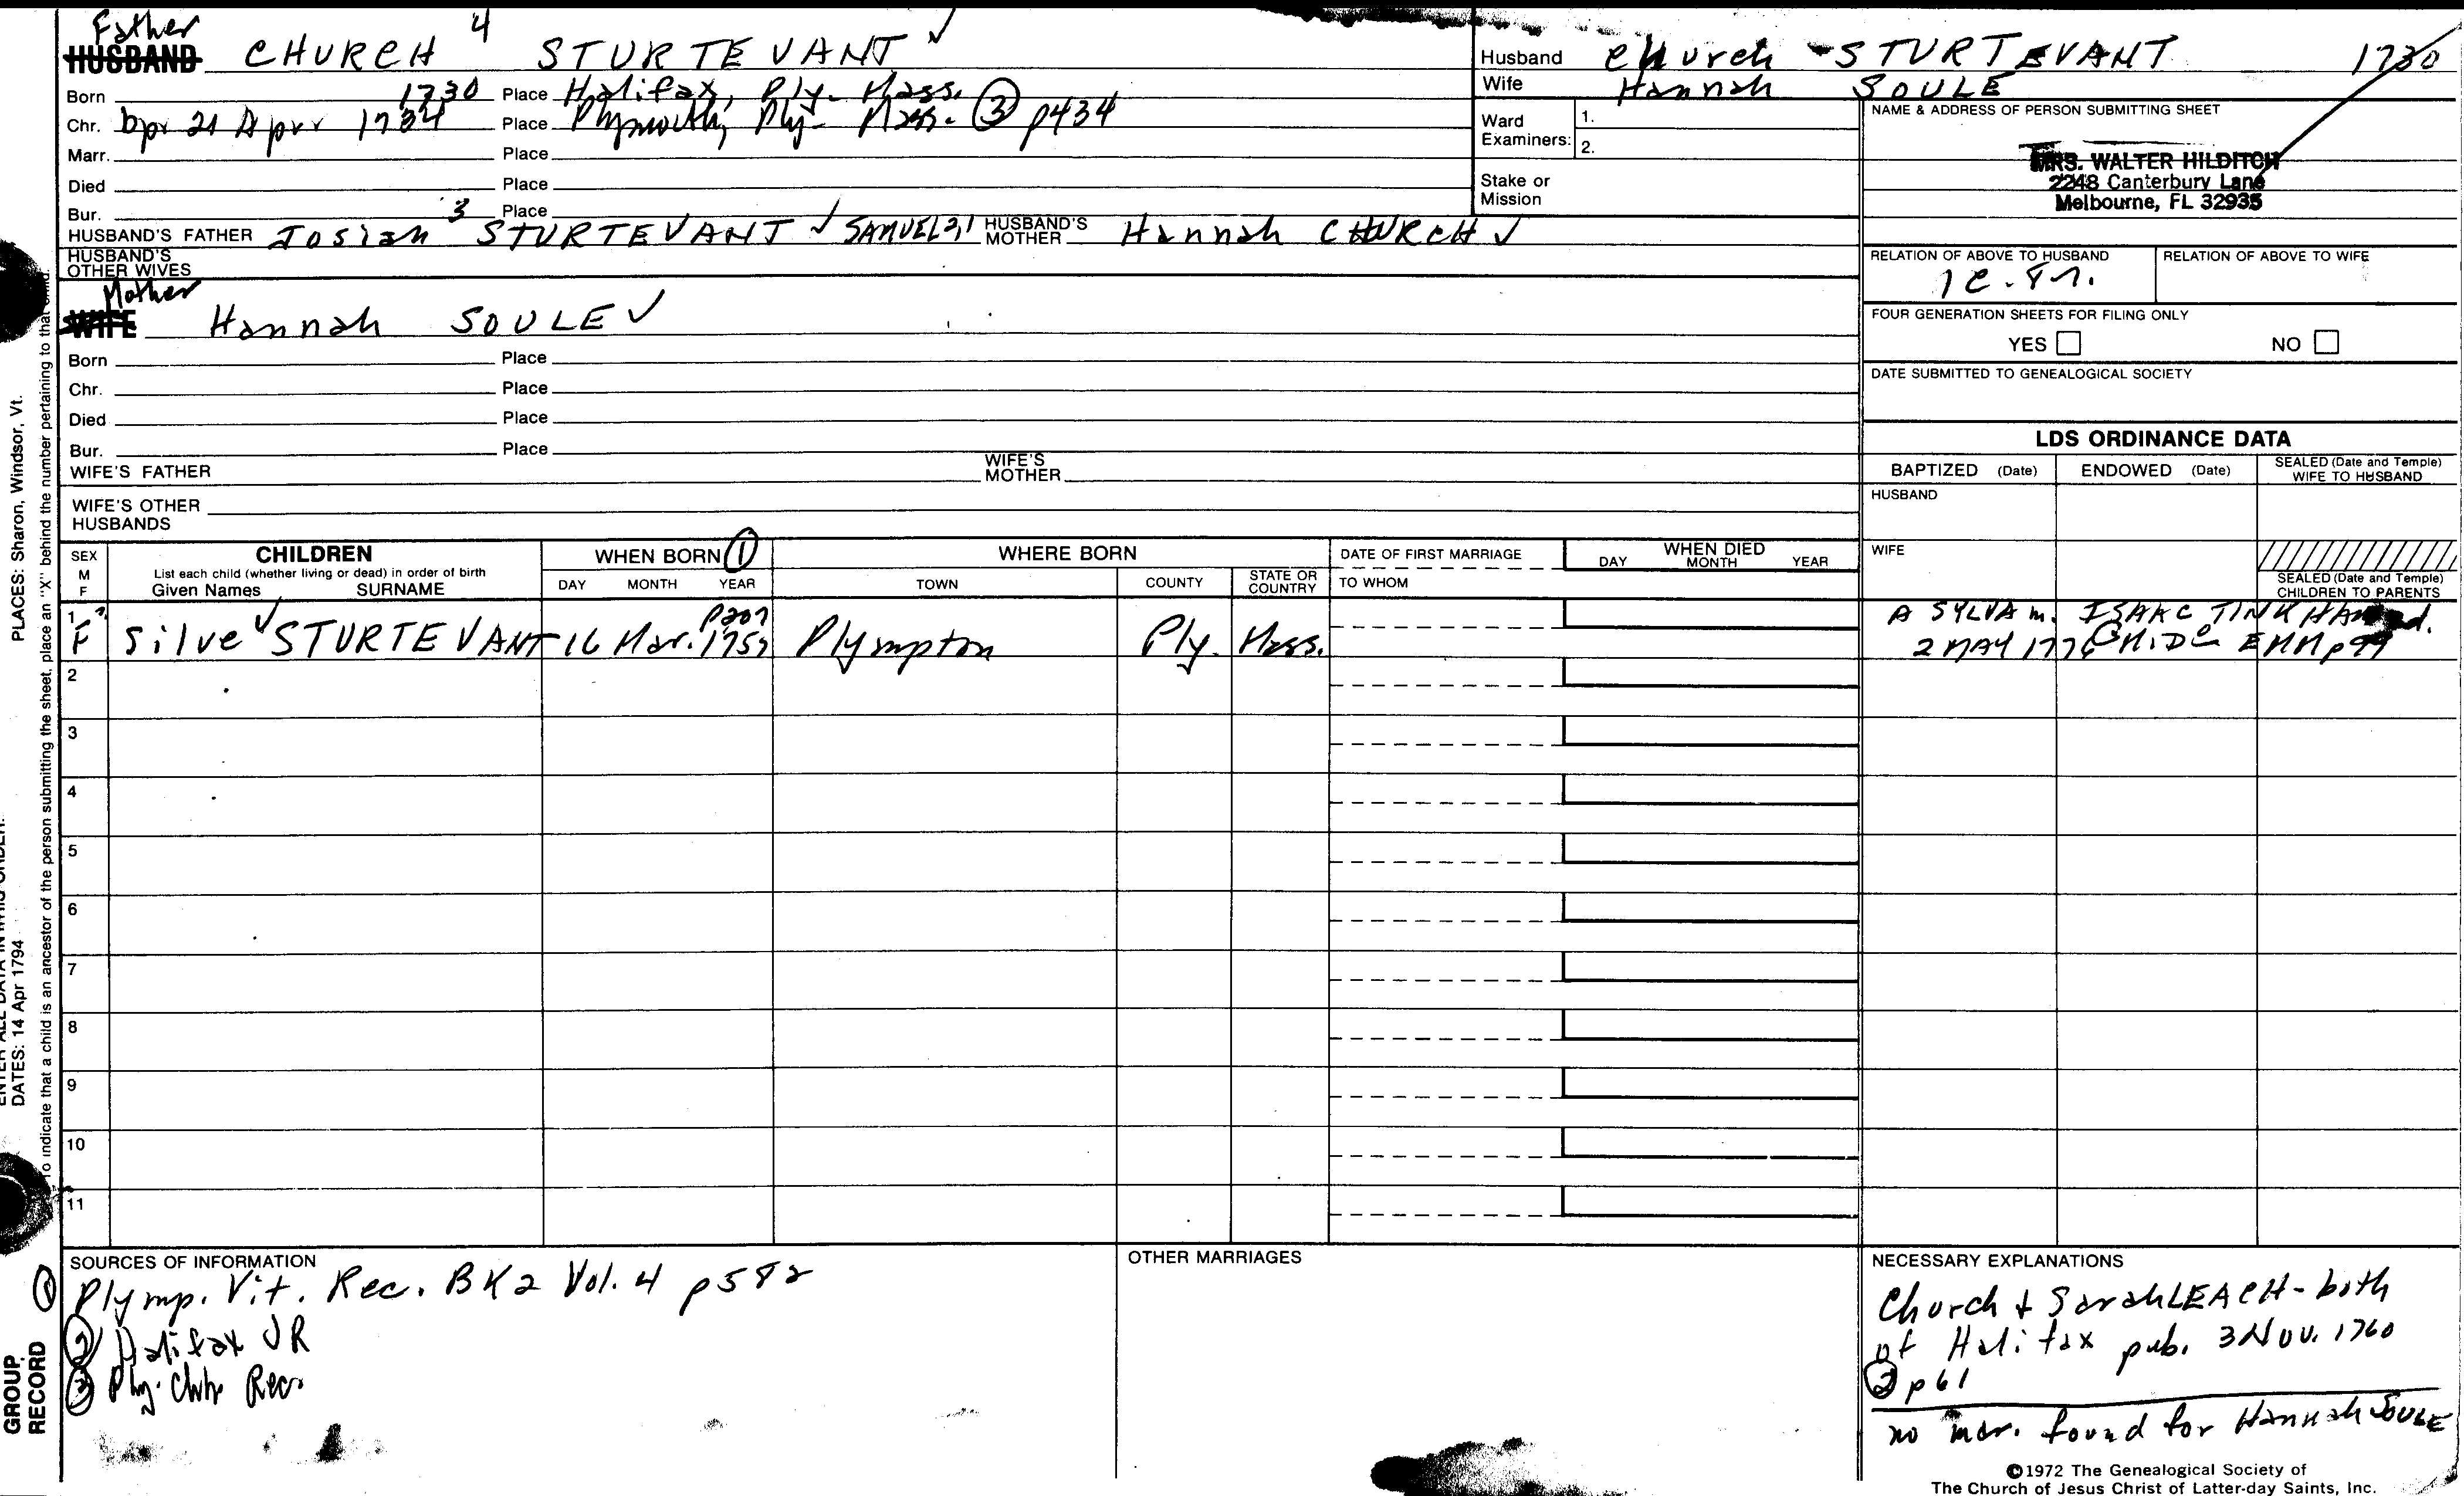 Father
HUSBAND CHURCH 4 STURTEVANT ✓
Born 1730 Place Halifax, Ply. Mass.
Chr. bpt 21 Apr 1734 Place Plymouth, Ply. Mass. ③ p434
Marr. Place
Died Place
Bur. Place
HUSBAND'S FATHER Josiah 3 STURTEVANT ✓ SAMUEL 2,1 HUSBAND'S MOTHER Hannah CHURCH ✓
HUSBAND'S OTHER WIVES
Mother
WIFE Hannah SOULE ✓
Born Place
Chr. Place
Died Place
Bur. Place
WIFE'S FATHER WIFE'S MOTHER
WIFE'S OTHER HUSBANDS
Husband Church STURTEVANT 1730
Wife Hannah SOULE
Ward Examiners: 1.
2.
Stake or Mission
NAME & ADDRESS OF PERSON SUBMITTING SHEET
MRS. WALTER HILDITCH
2248 Canterbury Lane
Melbourne, FL 32935
RELATION OF ABOVE TO HUSBAND RELATION OF ABOVE TO WIFE
1c.8r.
FOUR GENERATION SHEETS FOR FILING ONLY
YES NO
DATE SUBMITTED TO GENEALOGICAL SOCIETY
LDS ORDINANCE DATA
BAPTIZED (Date) ENDOWED (Date) SEALED (Date and Temple) WIFE TO HUSBAND
HUSBAND
WIFE
SEALED (Date and Temple) CHILDREN TO PARENTS
SEX M F CHILDREN
List each child (whether living or dead) in order of birth
Given Names SURNAME
WHEN BORN ①
DAY MONTH YEAR
WHERE BORN
TOWN COUNTY STATE OR COUNTRY
DATE OF FIRST MARRIAGE
TO WHOM
WHEN DIED
DAY MONTH YEAR
p207
1 F Silve ✓ STURTEVANT 16 Mar. 1759 Plympton Ply. Mass.
A SYLVA m. ISAAC TINKHAM
2 MAY 1776 MID EMM p99
2
3
4
5
6
7
8
9
10
11
SOURCES OF INFORMATION
① Plymp. Vit. Rec. BK 2 Vol. 4 p582
② Halifax VR
③ Ply. Chh Recs
OTHER MARRIAGES
NECESSARY EXPLANATIONS
Church + Sarah LEACH - both
of Halifax pub. 3 Nov. 1760
② p61
no mar. found for Hannah SOULE
©1972 The Genealogical Society of
The Church of Jesus Christ of Latter-day Saints, Inc.
PLACES: Sharon, Windsor, Vt.
DATES: 14 Apr 1794
To indicate that a child is an ancestor of the person submitting the sheet, place an "X" behind the number pertaining to that child.
GROUP RECORD